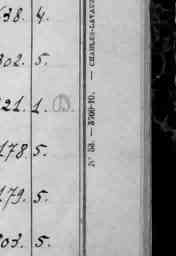 38. 4.
302. 5.
21. 1.
178. 5.
179. 5.
303. 5.
N° 53. — 3500-10. — CHARLES-LAVAUZ